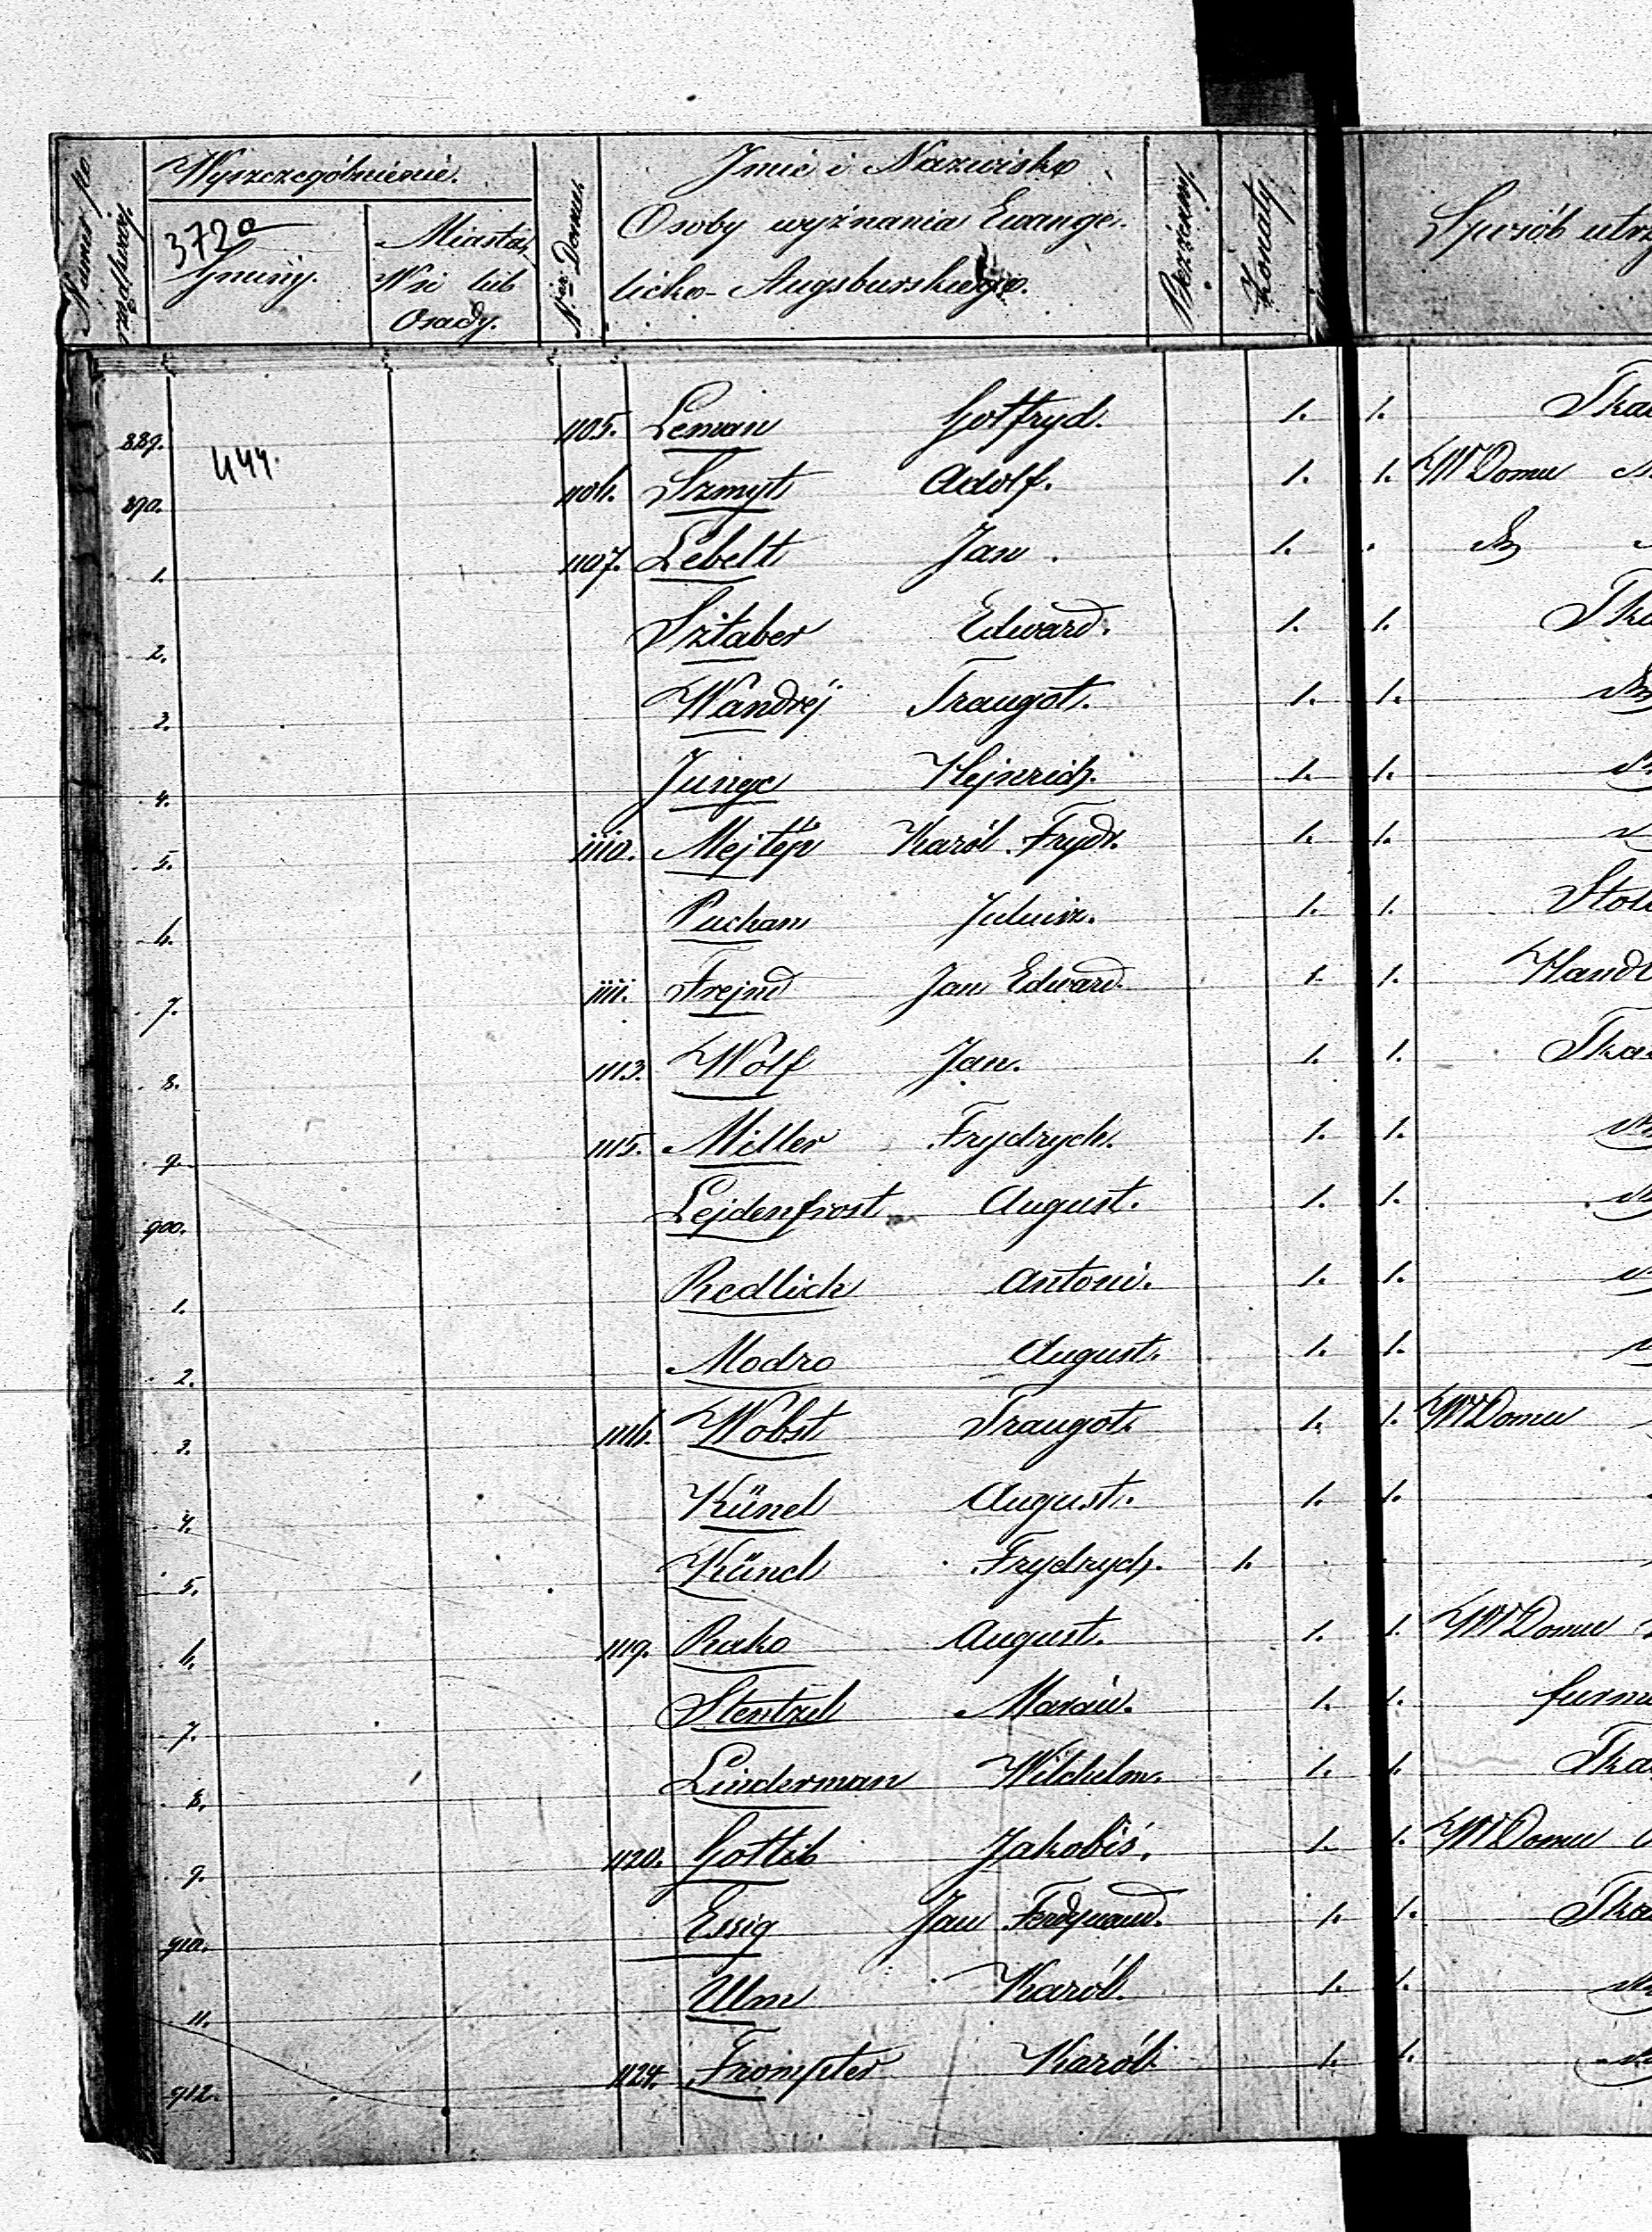 Numer po
rządkowy.
Wyszczególnienie.
372a
Gminy.
Miasta,
Wsi lub
Osady.
N.er Domu.
Imie i Nazwisko
Osoby wyznania Ewange-
licko-Augsburskiego.
Bezżenny.
Żonaty.
Sposób utrz
444.
889. 1105. Leman Gotfryd. 1. 1. Tka
890. 1106. Szmyt Adolf. 1. 1. W Domu
1. 1107. Lebelt Jan. 1.
2. Sztaber Edward. 1. 1. Tka
3. Wandréj Traugot. 1. 1.
4. Junge Hejnrich. 1. 1.
5. 1110. Mejtÿn Karól Frydr. 1. 1.
6. Pucham Juliusz. 1. 1. Stol
7. 1111. Frejnd Jan Edward. 1. 1. Handl
8. 1113. Wolf Jan. 1. 1. Tka
9. 1115. Miller Frydrych. 1. 1.
900. Lejdenfrost August. 1. 1.
1. Redlich Antoni. 1. 1.
2. Modro August. 1. 1.
3. 1116. Wobst Traugot. 1. 1. W Domu
4. Künel August. 1. 1.
5. Künel Frydrych. 1.
6. 1119. Rako August. 1. 1. W Domu
7. Stentzel 1. 1. furm
8. Linderman Wilchelm. 1. 1. Tka
9. 1120. Gottlib Jakobiś. 1. 1. W Domu
910. Essig Jan Ferdynand. 1. 1. Tka
11. Ulm Karól. 1. 1.
912. 1124. Frompter Karól 1. 1.